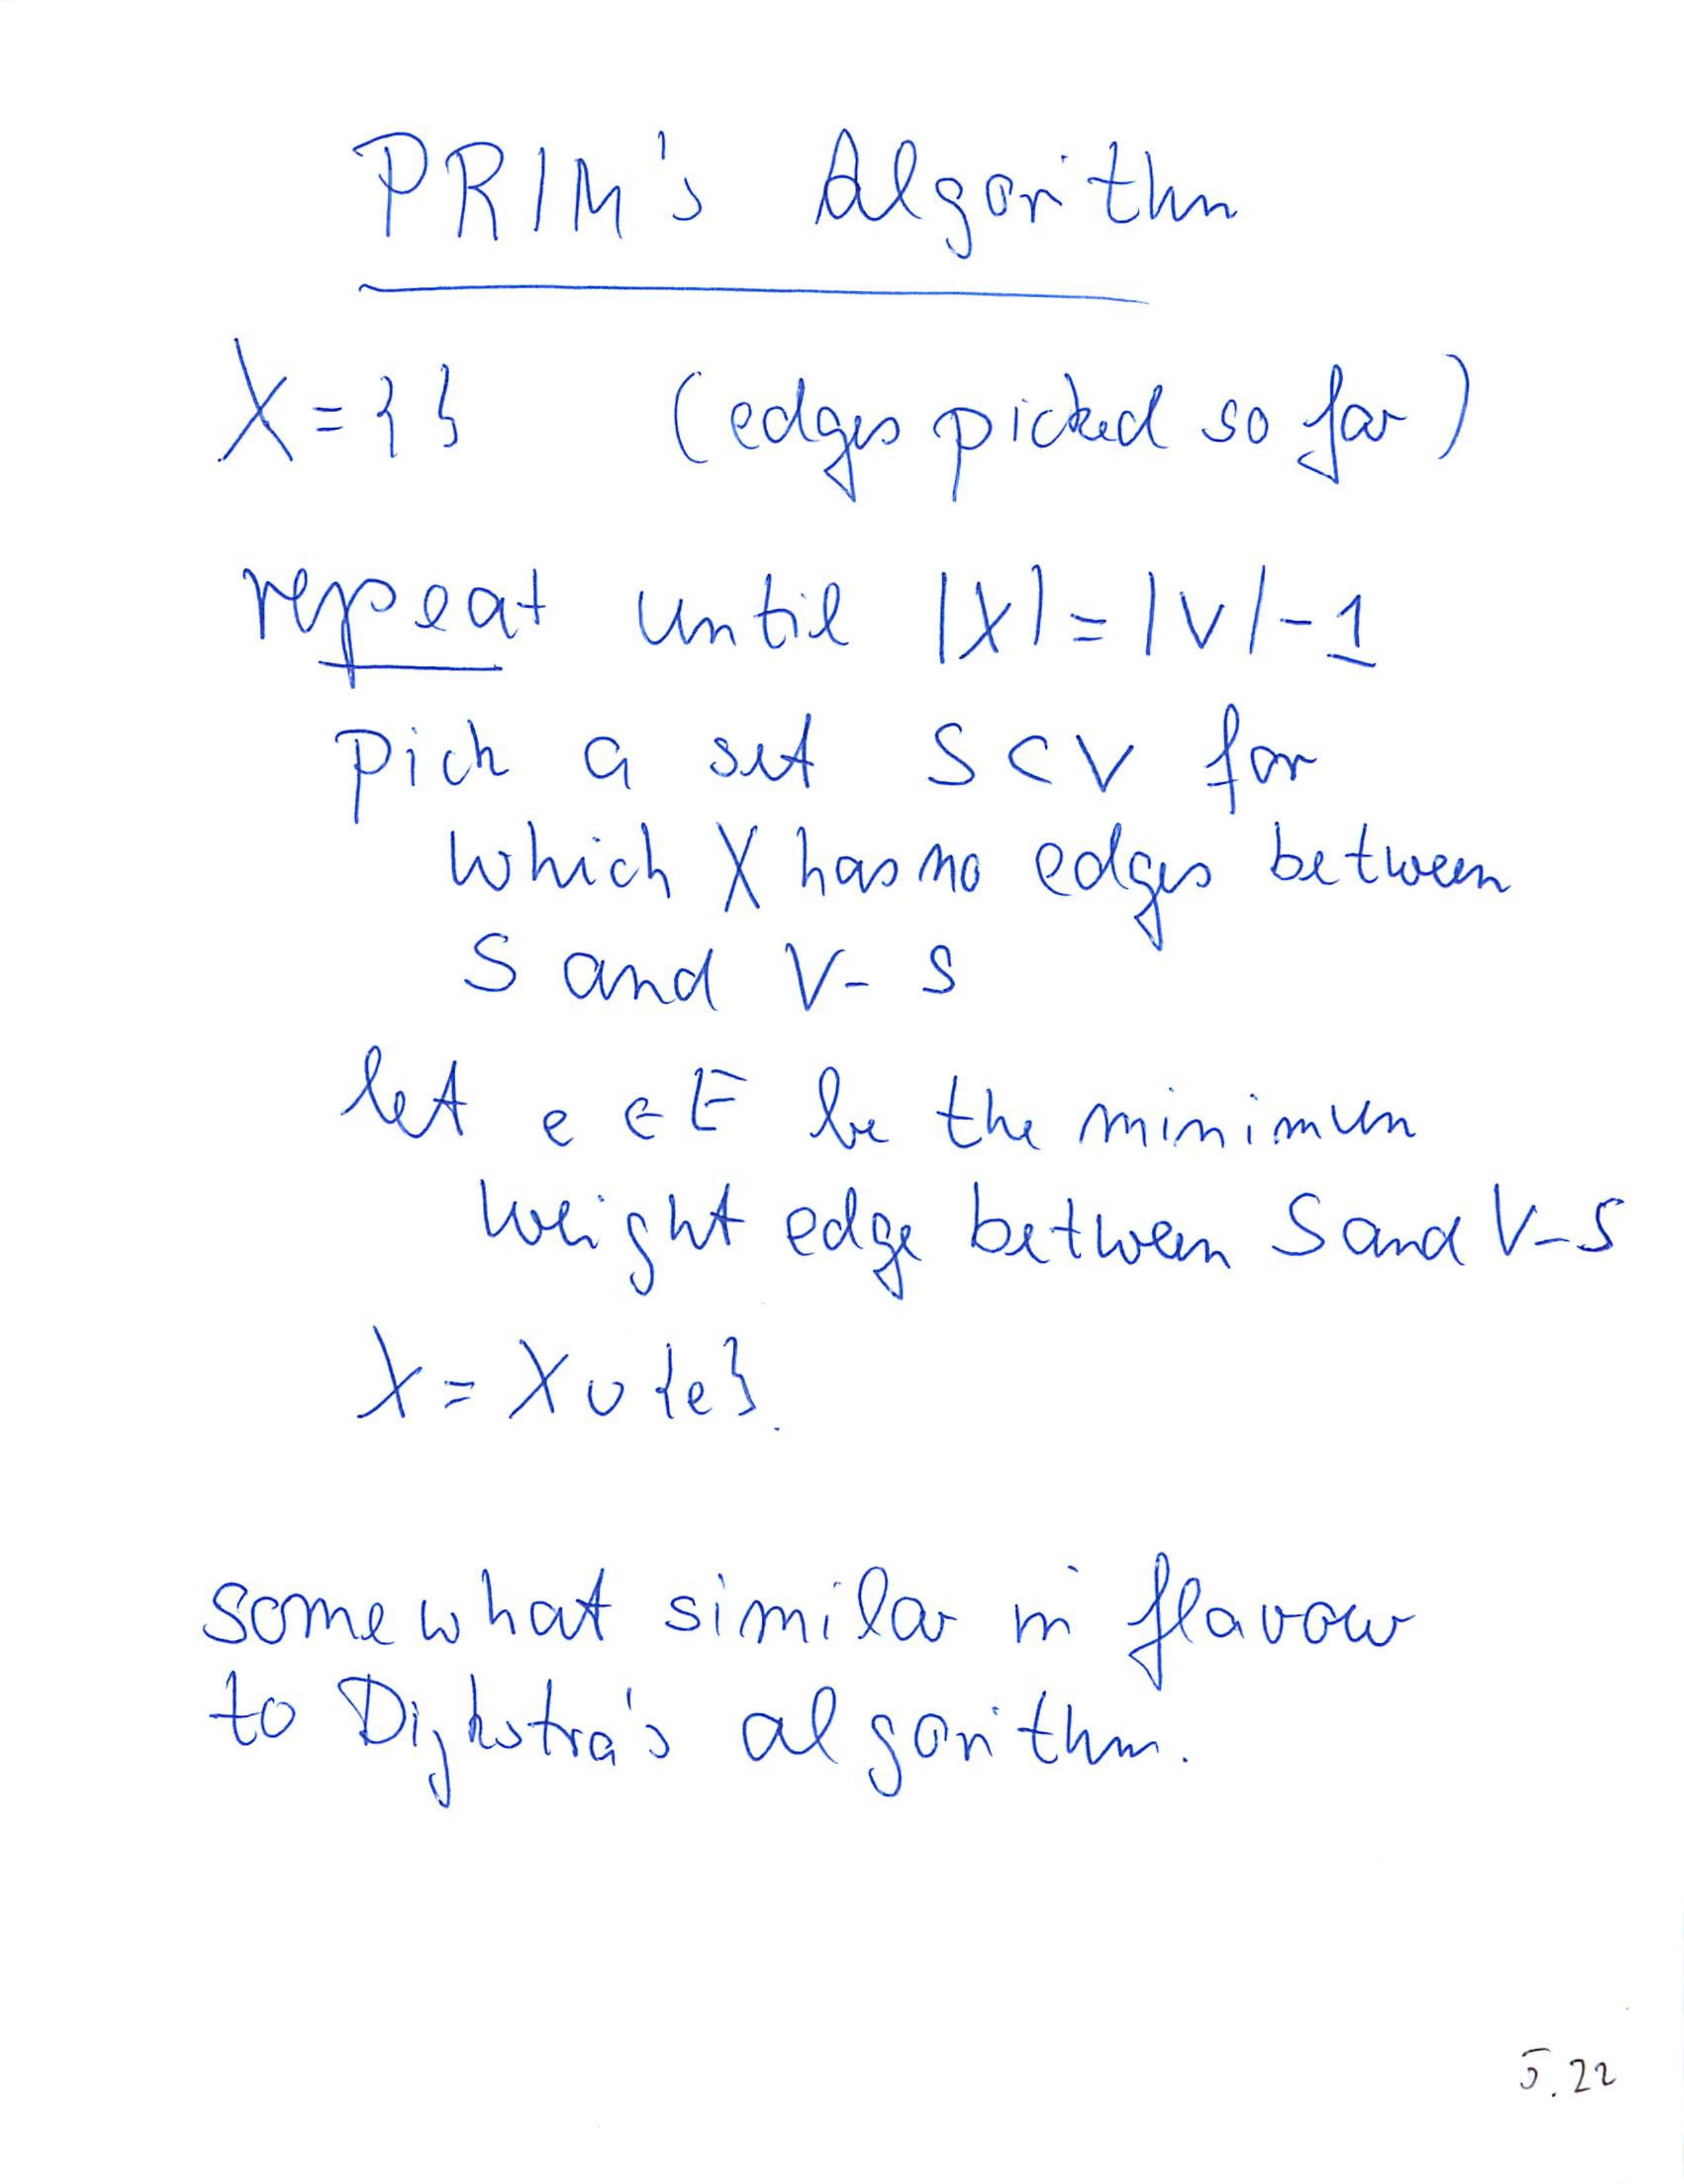 PRIM's Algorithm
X = { } (edges picked so far)
repeat until |X| = |V| - 1
pick a set S ⊂ V for
which X has no edges between
S and V - S
let e ∈ E be the minimum
weight edge between S and V - S
X = X ∪ {e}.
somewhat similar in flavour
to Dijkstra's algorithm.
5.22